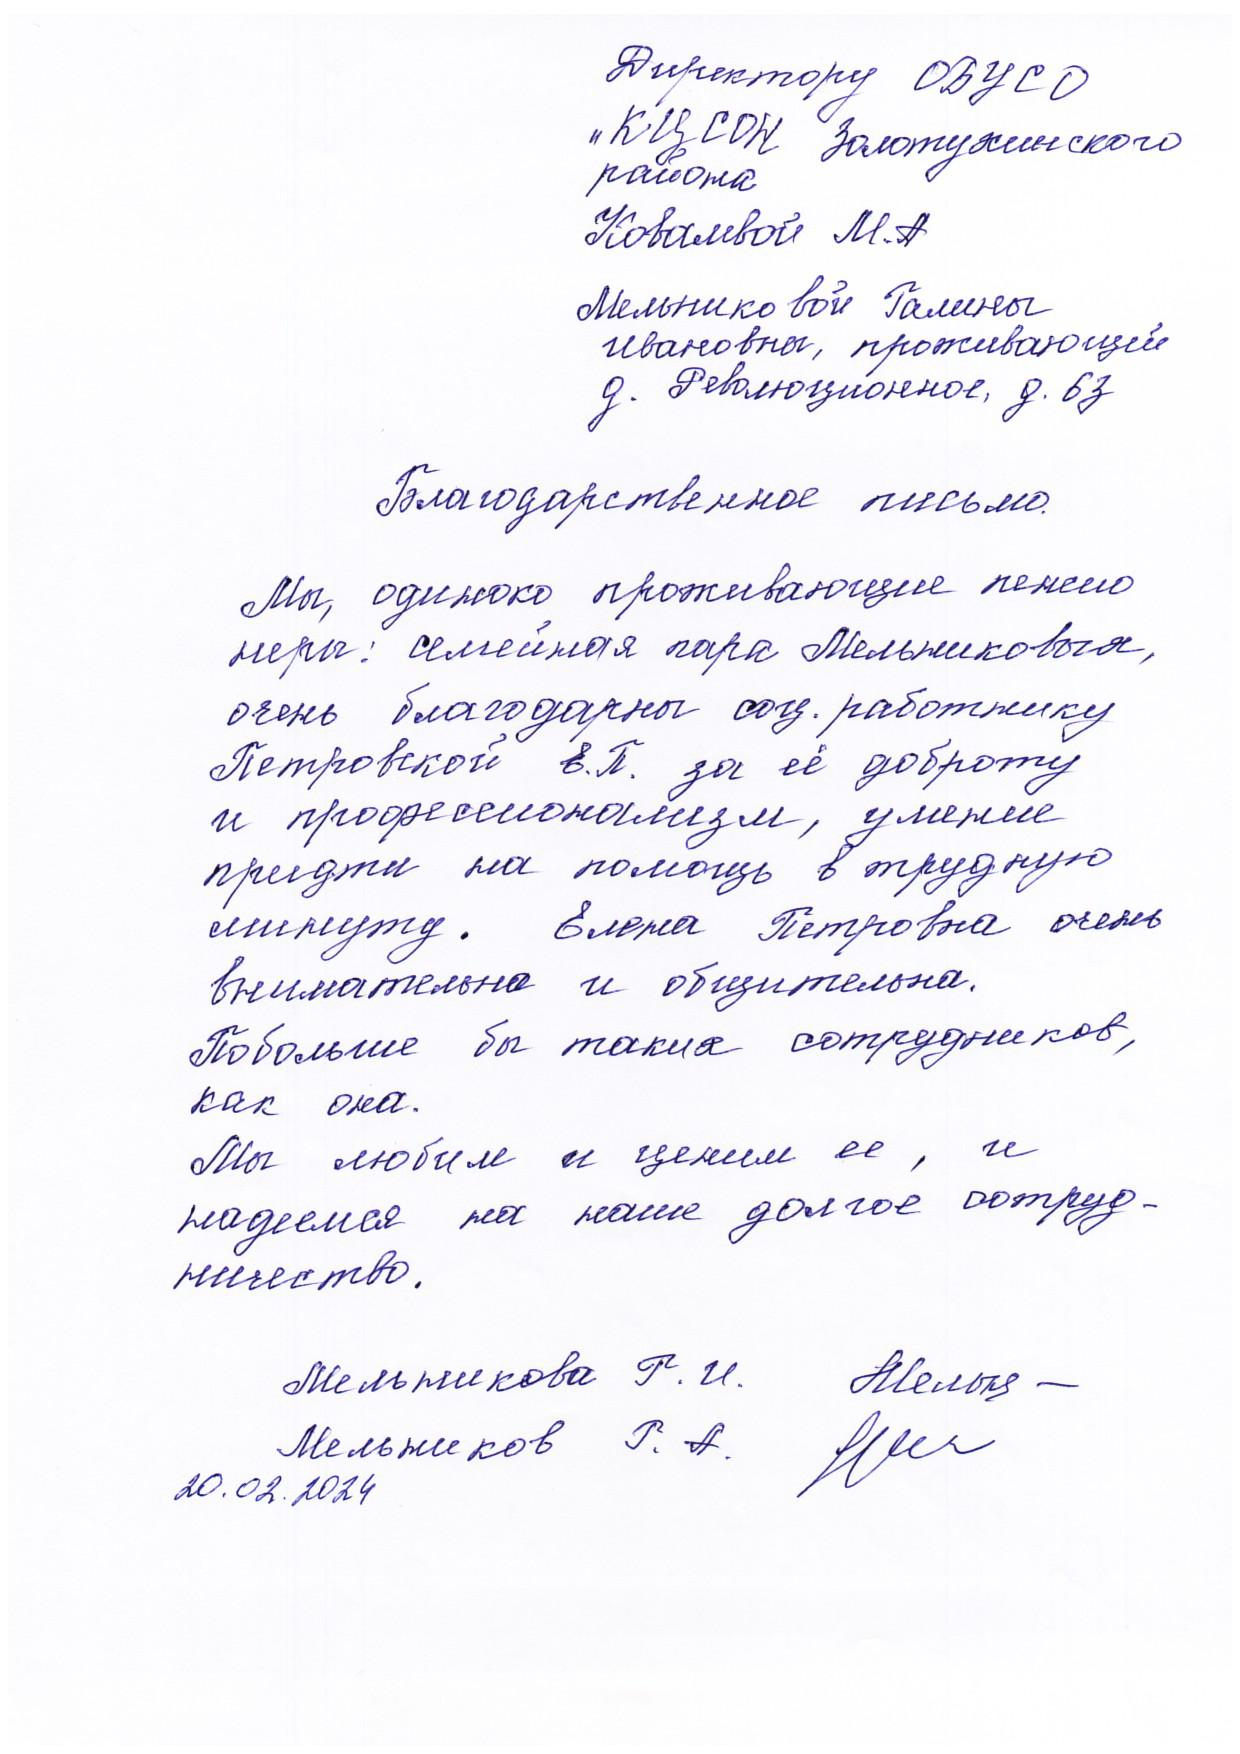 Директору ОБУСО
"КЦСОН Золотухинского
района
Ковалевой М.А
Мельниковой Галины
Ивановны, проживающей
д. Революционное, д. 63
Благодарственное письмо.
Мы, одиноко проживающие пенсио
неры: семейная пара Мельниковых,
очень благодарны соц. работнику
Петровской Е.П. за её доброту
и профессионализм, умение
придти на помощь в трудную
минуту. Елена Петровна очень
внимательна и общительна.
Побольше бы таких сотрудников,
как она.
Мы любим и ценим ее, и
надеемся на наше долгое сотруд-
ничество.
Мельникова Г.И.
Мельников Г.А.
20.02.2024